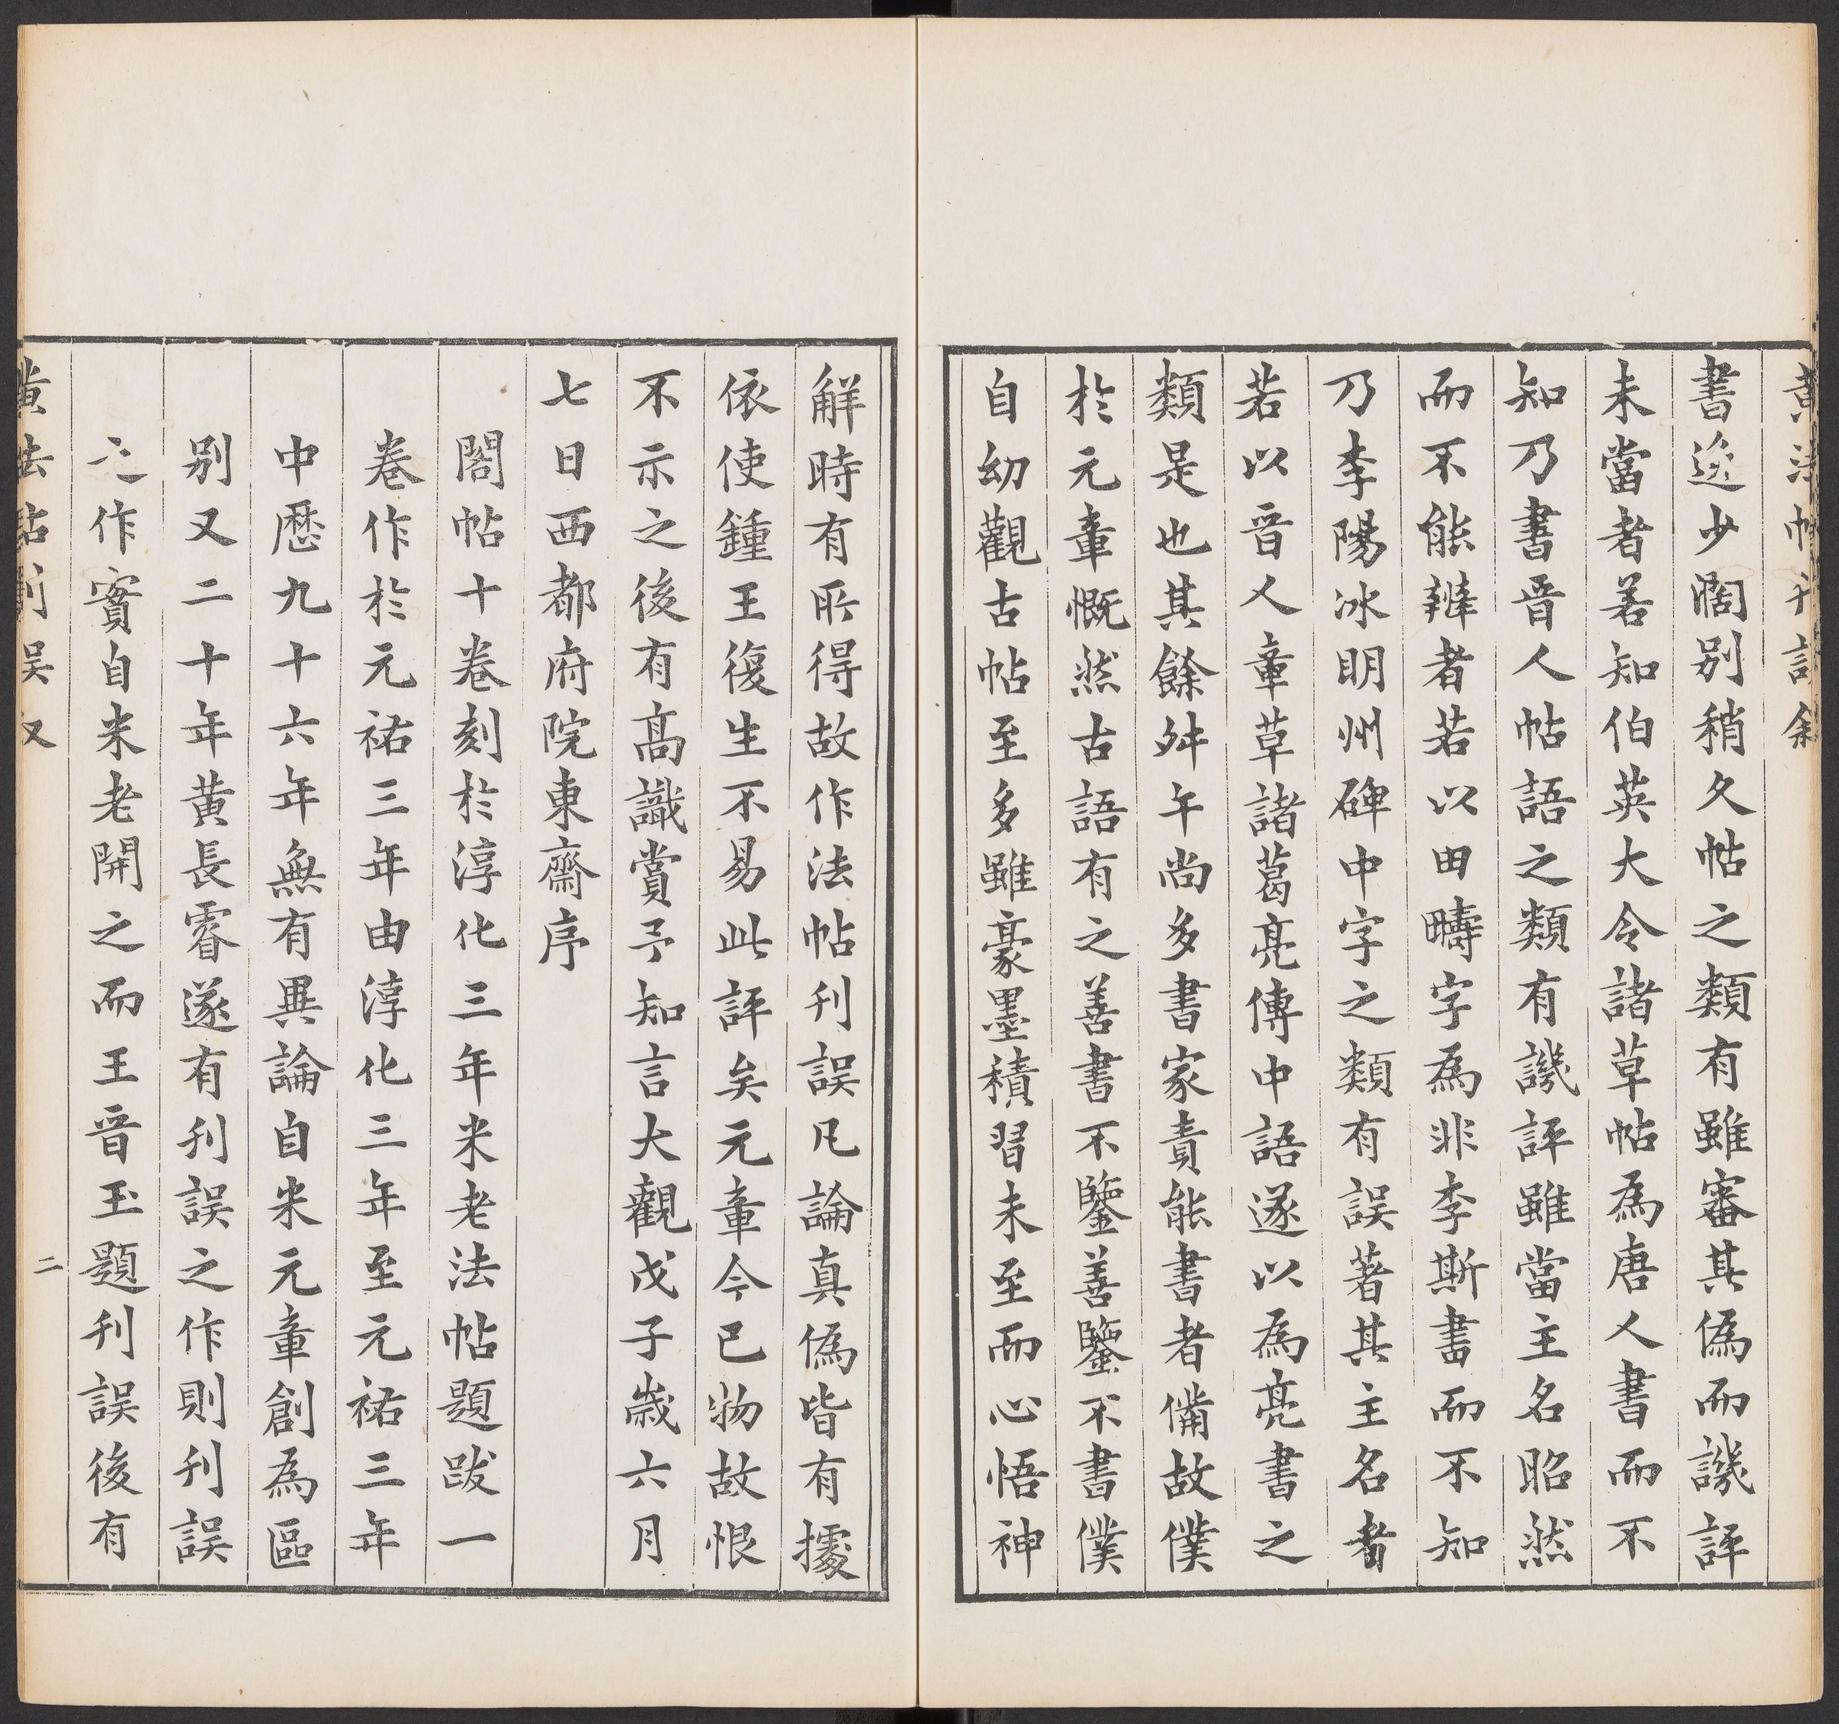 黃法帖刊誤叙
書逸少闊别稍久帖之類有雖審其僞而譏評
未當者若知伯英大令諸草帖為唐人書而不
知乃書晉人帖語之類有譏評雖當主名昭然
而不能辨者若以田疇字為非李斯書而不知
乃李陽冰明州碑中字之類有誤著其主名者
若以晉人章草諸葛亮傳中語遂以為亮書之
類是也其餘舛午尚多書家責能書者備故僕
於元章慨然古語有之善書不鑒善鑒不書僕
自幼觀古帖至多雖豪墨積習未至而心悟神
解時有所得故作法帖刊誤凡論真僞皆有據
依使鍾王復生不易此評矣元章今已物故恨
不示之後有高識賞予知言大觀戊子歲六月
七日西都府院東齋序
閣帖十卷刻於淳化三年米老法帖題跋一
卷作於元祐三年由淳化三年至元祐三年
中歷九十六年無有異論自米元章創為區
别又二十年黃長睿遂有刊誤之作則刊誤
之作實自米老開之而王晉玉題刊誤後有
黃法帖刊誤叙
二